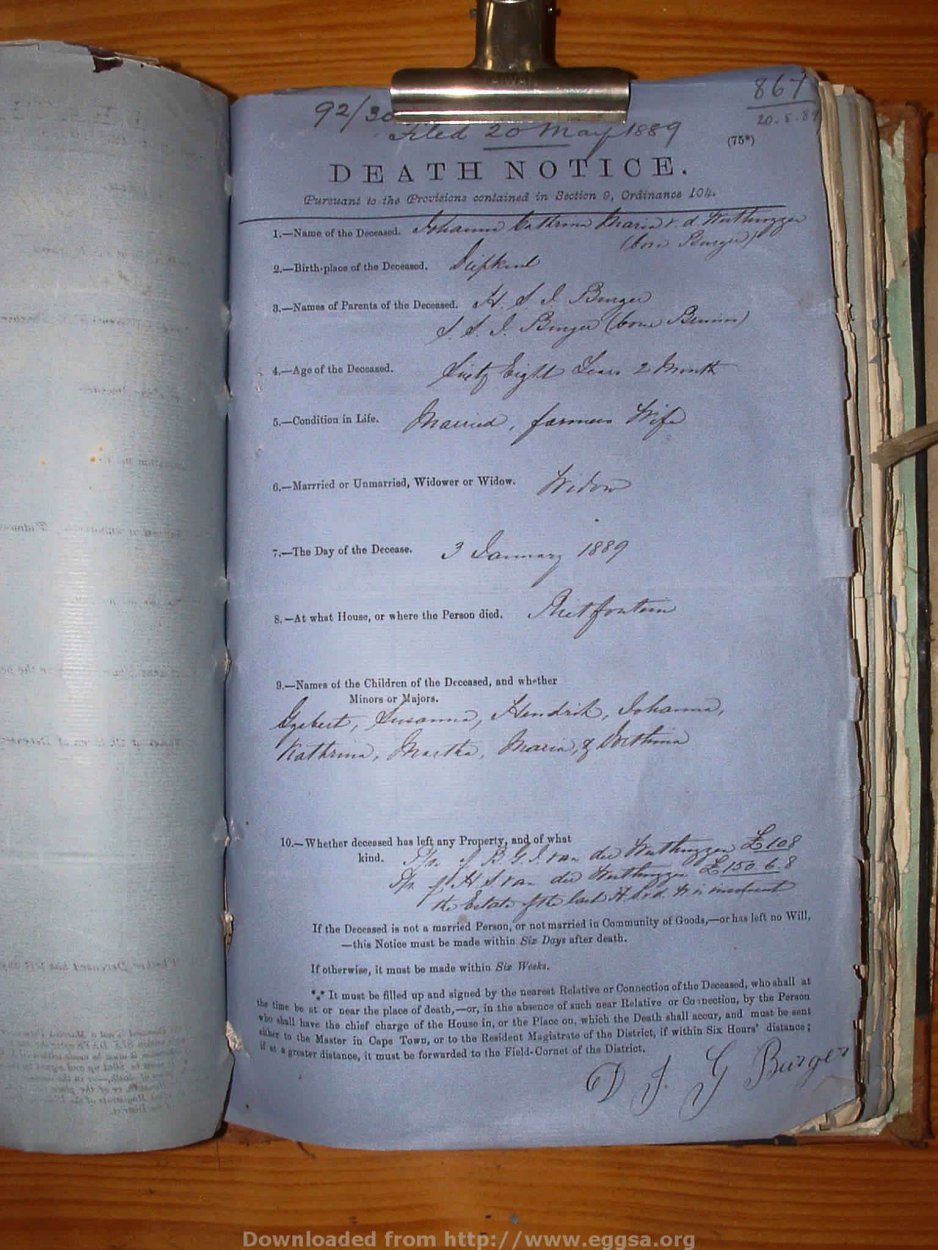 867
92/30
20.5.89
Filed 20 May 1889
(75*)
DEATH NOTICE.
Pursuant to the Provisions contained in Section 9, Ordinance 104.
1.—Name of the Deceased. Johanna Cathrina Maria v. d. Westhuyzen
(born Burger)
2.—Birth-place of the Deceased.
3.—Names of Parents of the Deceased. H. S. J. Burger
S. S. J. Burger (born
4.—Age of the Deceased. Sixty Eight Years 2 Month
5.—Condition in Life. Married, farmers Wife
6.—Marrried or Unmarried, Widower or Widow. Widow
7.—The Day of the Decease. 3 January 1889
8.—At what House, or where the Person died. Rietfontein
9.—Names of the Children of the Deceased, and whether
Minors or Majors.
Gysbert, Susanna, Hendrik, Johanna,
Kathrina, Martha, Maria, &
10.—Whether deceased has left any Property, and of what
kind. of B. G. J. van der Westhuyzen £108
of H S van der Westhuyzen £150.6.8
the Estate of the last is insolvent
If the Deceased is not a married Person, or not married in Community of Goods,—or has left no Will,
—this Notice must be made within Six Days after death.
If otherwise, it must be made within Six Weeks.
*** It must be filled up and signed by the nearest Relative or Connection of the Deceased, who shall at
the time be at or near the place of death,—or, in the absence of such near Relative or Connection, by the Person
who shall have the chief charge of the House in, or the Place on, which the Death shall occur, and must be sent
either to the Master in Cape Town, or to the Resident Magistrate of the District, if within Six Hours' distance;
if at a greater distance, it must be forwarded to the Field-Cornet of the District.
D J G Burger
Downloaded from http://www.eggsa.org